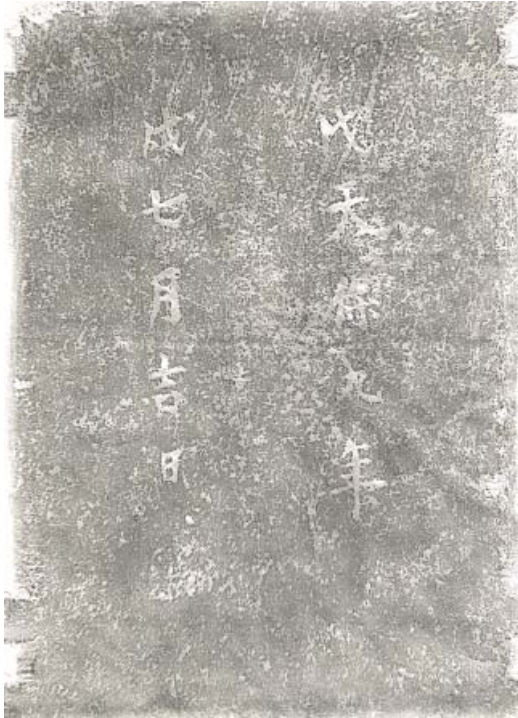 戊天保九年
戌七月吉日